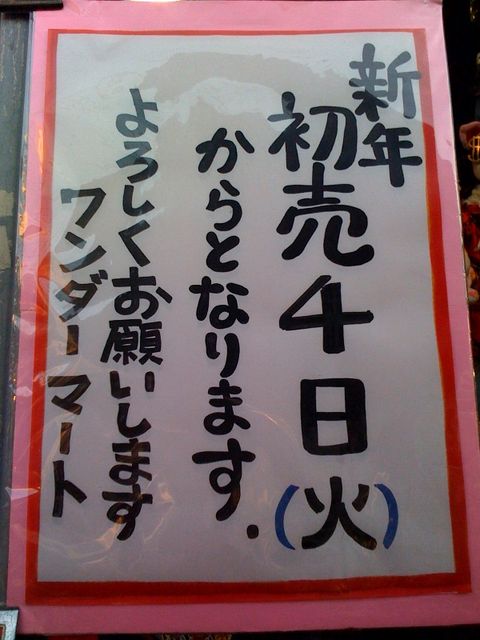 新年
初売4日(火)
からとなります.
よろしくお願いします
ワンダーマート